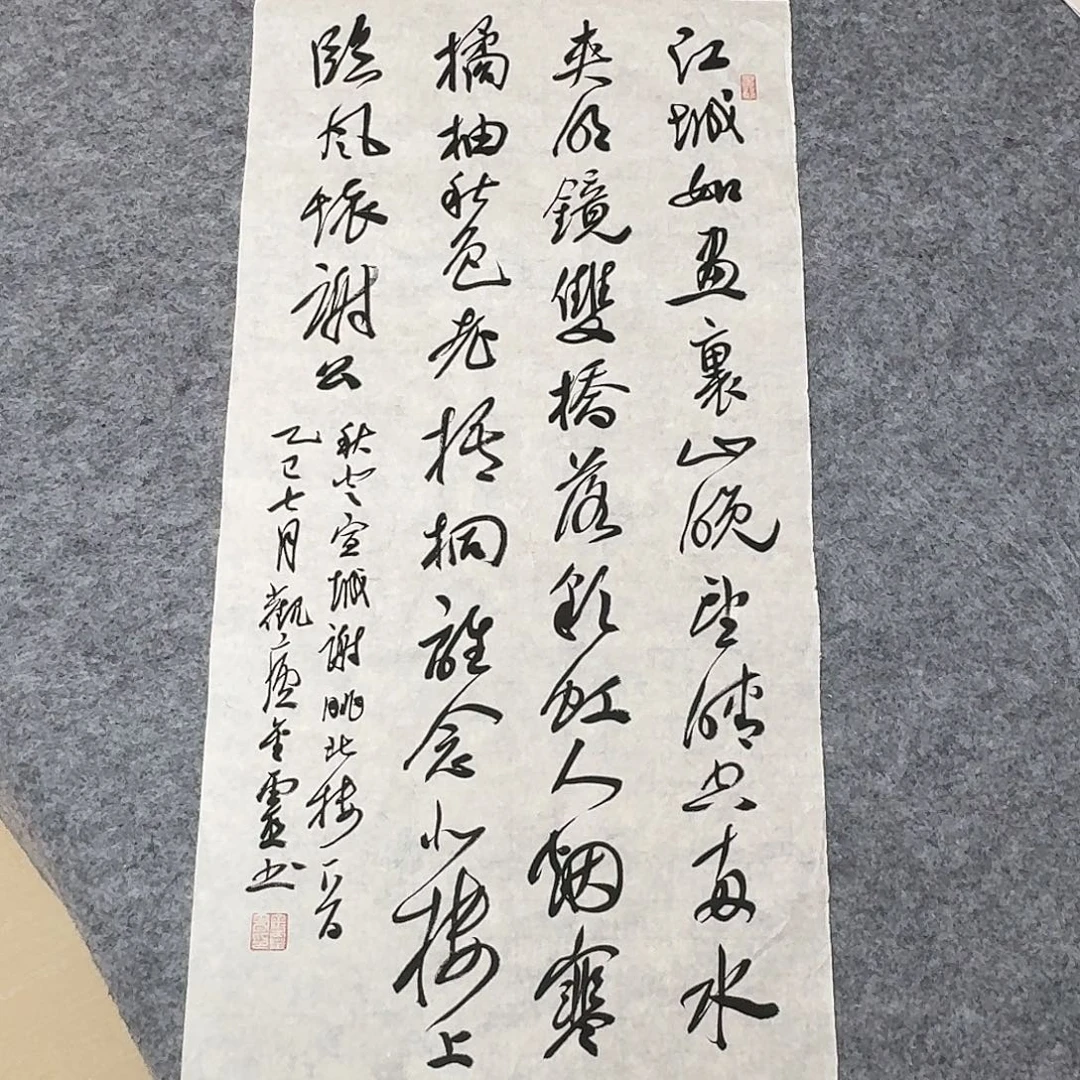 江城如畫裏山晚望晴空兩水
夾明鏡雙橋落彩虹人烟寒
橘柚秋色老梧桐誰念北樓上
臨風懷謝公
秋登宣城謝朓北樓一首
乙巳七月觀靈书